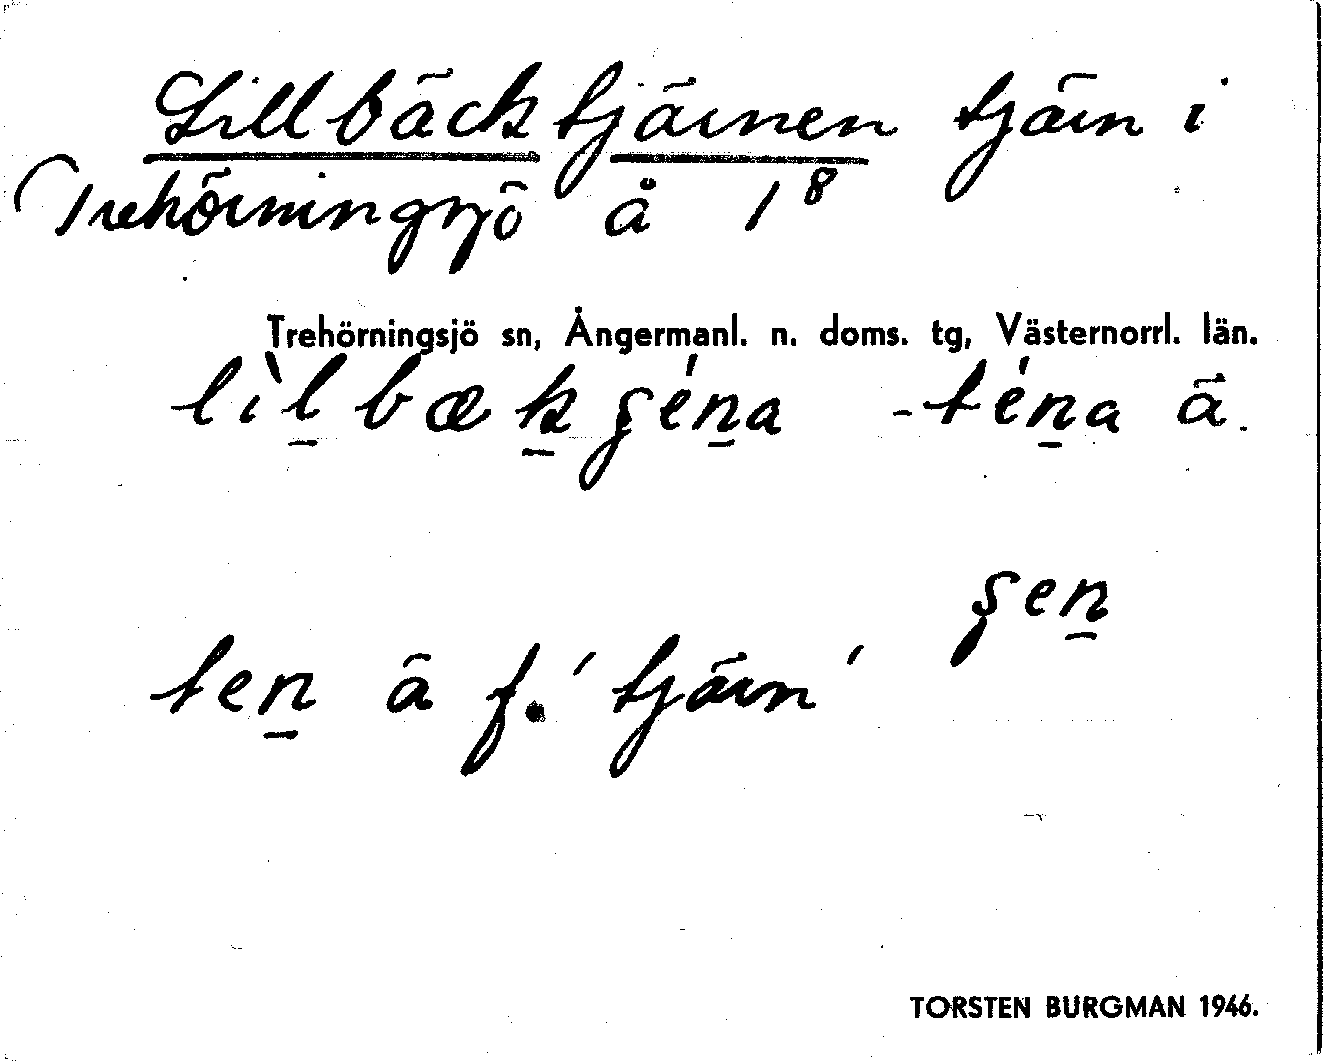 Lillbäcktjärnen tjärn i
Trehörningsjö å 1⁸
Trehörningsjö sn, Ångermanl. n. doms. tg, Västernorrl. län.
lìl̲bæk̲ʂén̲a -tén̲a ä.
ʂen̲
ten̲ ä f. ' tjärn '
TORSTEN BURGMAN 1946.